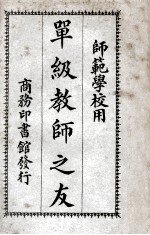 師範學校用
單級教師之友
商務印書館發行